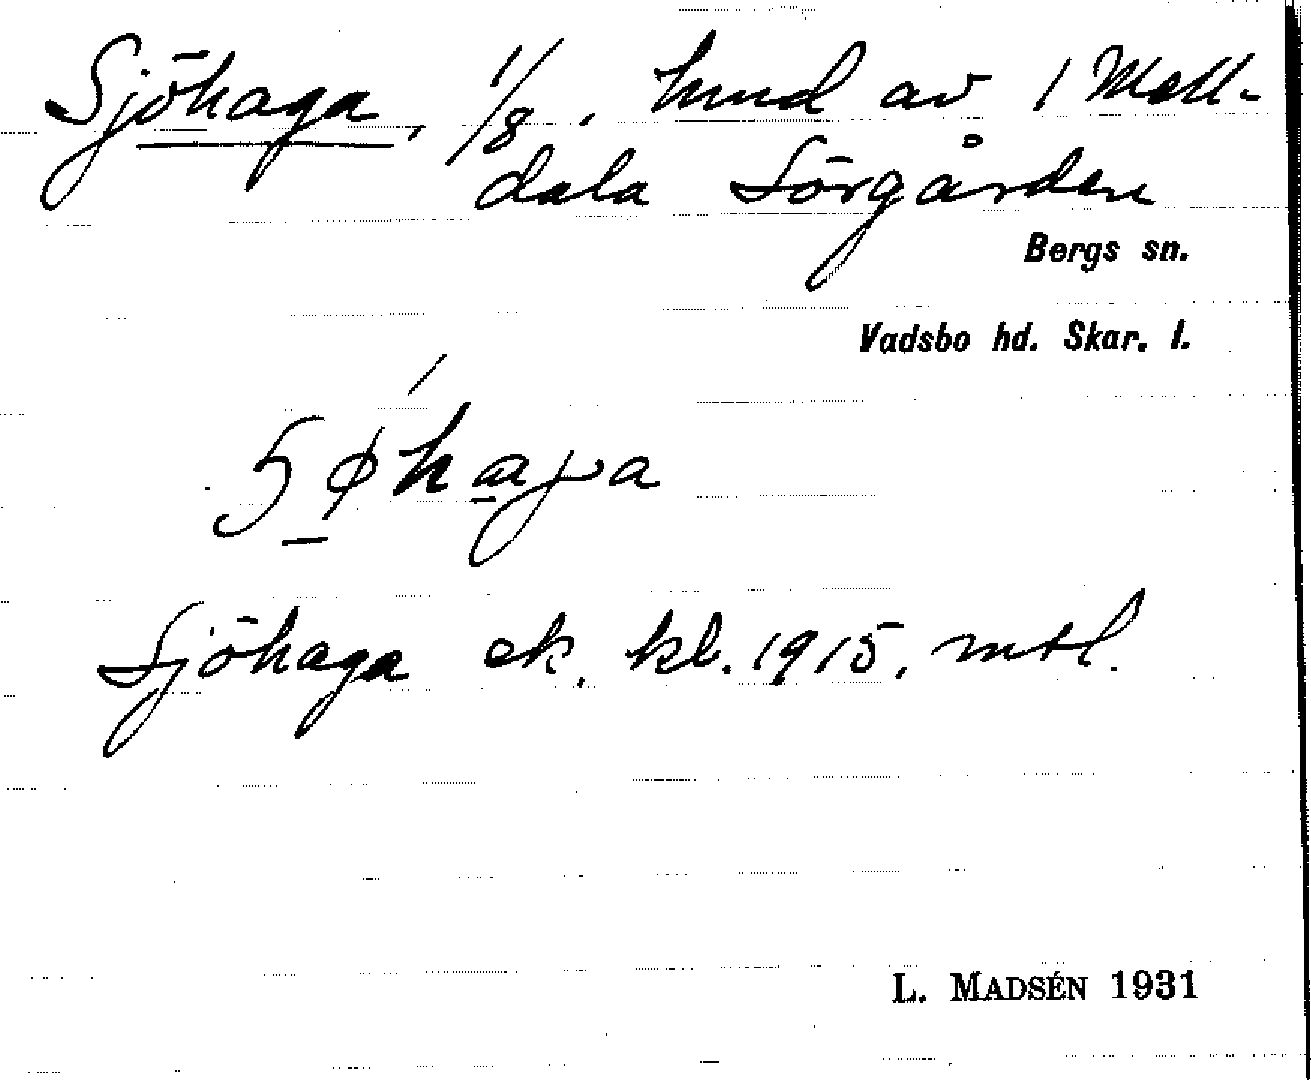 Sjöhaga, 1/8, hmd av 1 Mell-
dala Sörgården
Bergs sn.
Vadsbo hd. Skar. l.
Sjöhaga ek. kl. 1915, mtl.
L. MADSÉN 1931